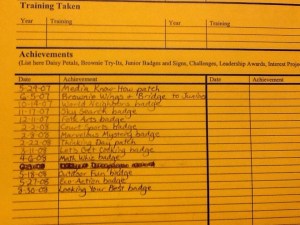 Training Taken
Year Training Year Training
Achievements
(List here Daisy Petals, Brownie Try-Its, Junior Badges and Signs, Challenges, Leadership Awards, Interest Proje
Date Achievement Date Achievement
5-29-07 Media Know-How patch
6-5-07 Brownie Wings + Bridge to Junior
10-19-07 World Neighbors badge
11-17-07 Sky Search badge
12-11-07 Folk Arts badge
2-2-08 Court Sports badge
2-8-08 Marvelous Mystery badge
2-22-08 Thinking Day patch
3-11-08 Let's Get Cooking badge
4-6-08 Math Whiz badge
Outdoor Fun badge
5-27-08 Car Action badge
8-30-08 Looking Your Best badge